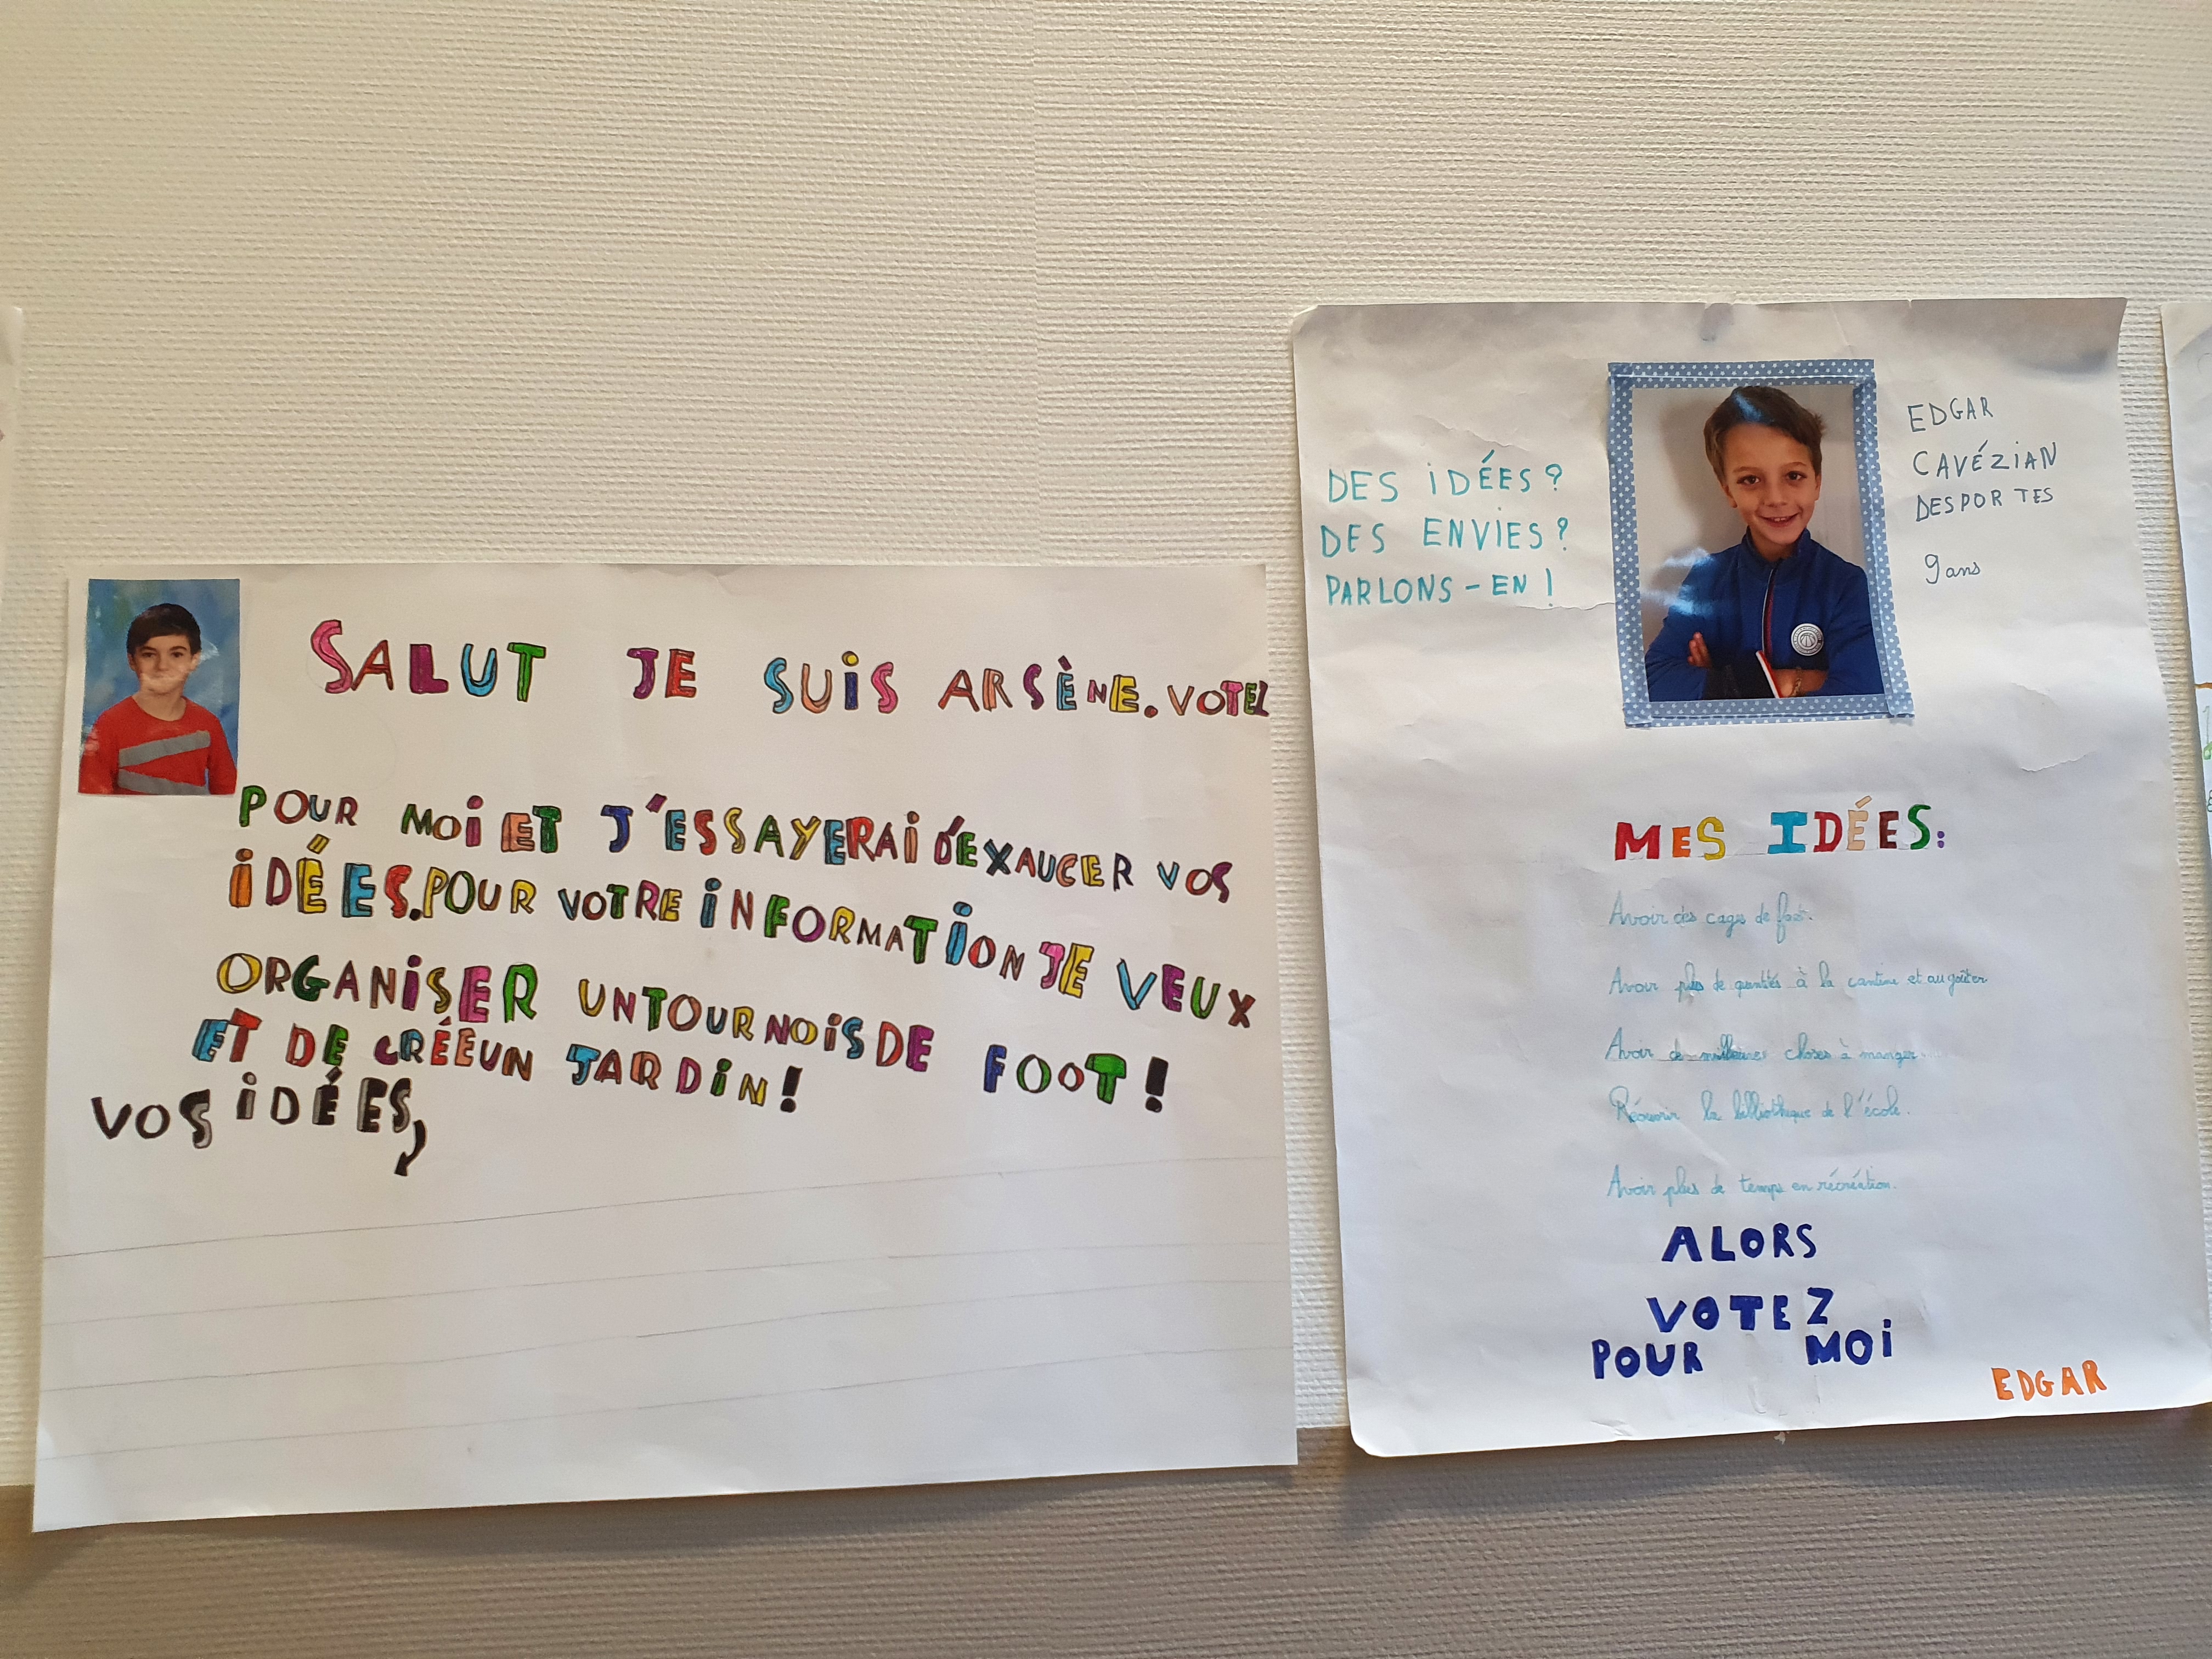 SALUT JE SUIS ARSÈNE. VOTEZ
POUR MOI ET J'ESSAYERAI D'EXAUCER VOS
IDÉES. POUR VOTRE INFORMATION JE VEUX
ORGANISER UN TOURNOIS DE FOOT!
ET DE CRÉE UN JARDIN!
VOS IDÉES,
DES IDÉES?
DES ENVIES?
PARLONS-EN!
EDGAR
CAVÉZIAN
DESPORTES
9 ans
MES IDÉES:
Avoir des cages de foot.
Avoir plus de quantités à la cantine et au goûter
Avoir de meilleures choses à manger.
Réouvrir la bibliothèque de l'école.
Avoir plus de temps en récréation.
ALORS
VOTEZ
POUR MOI
EDGAR